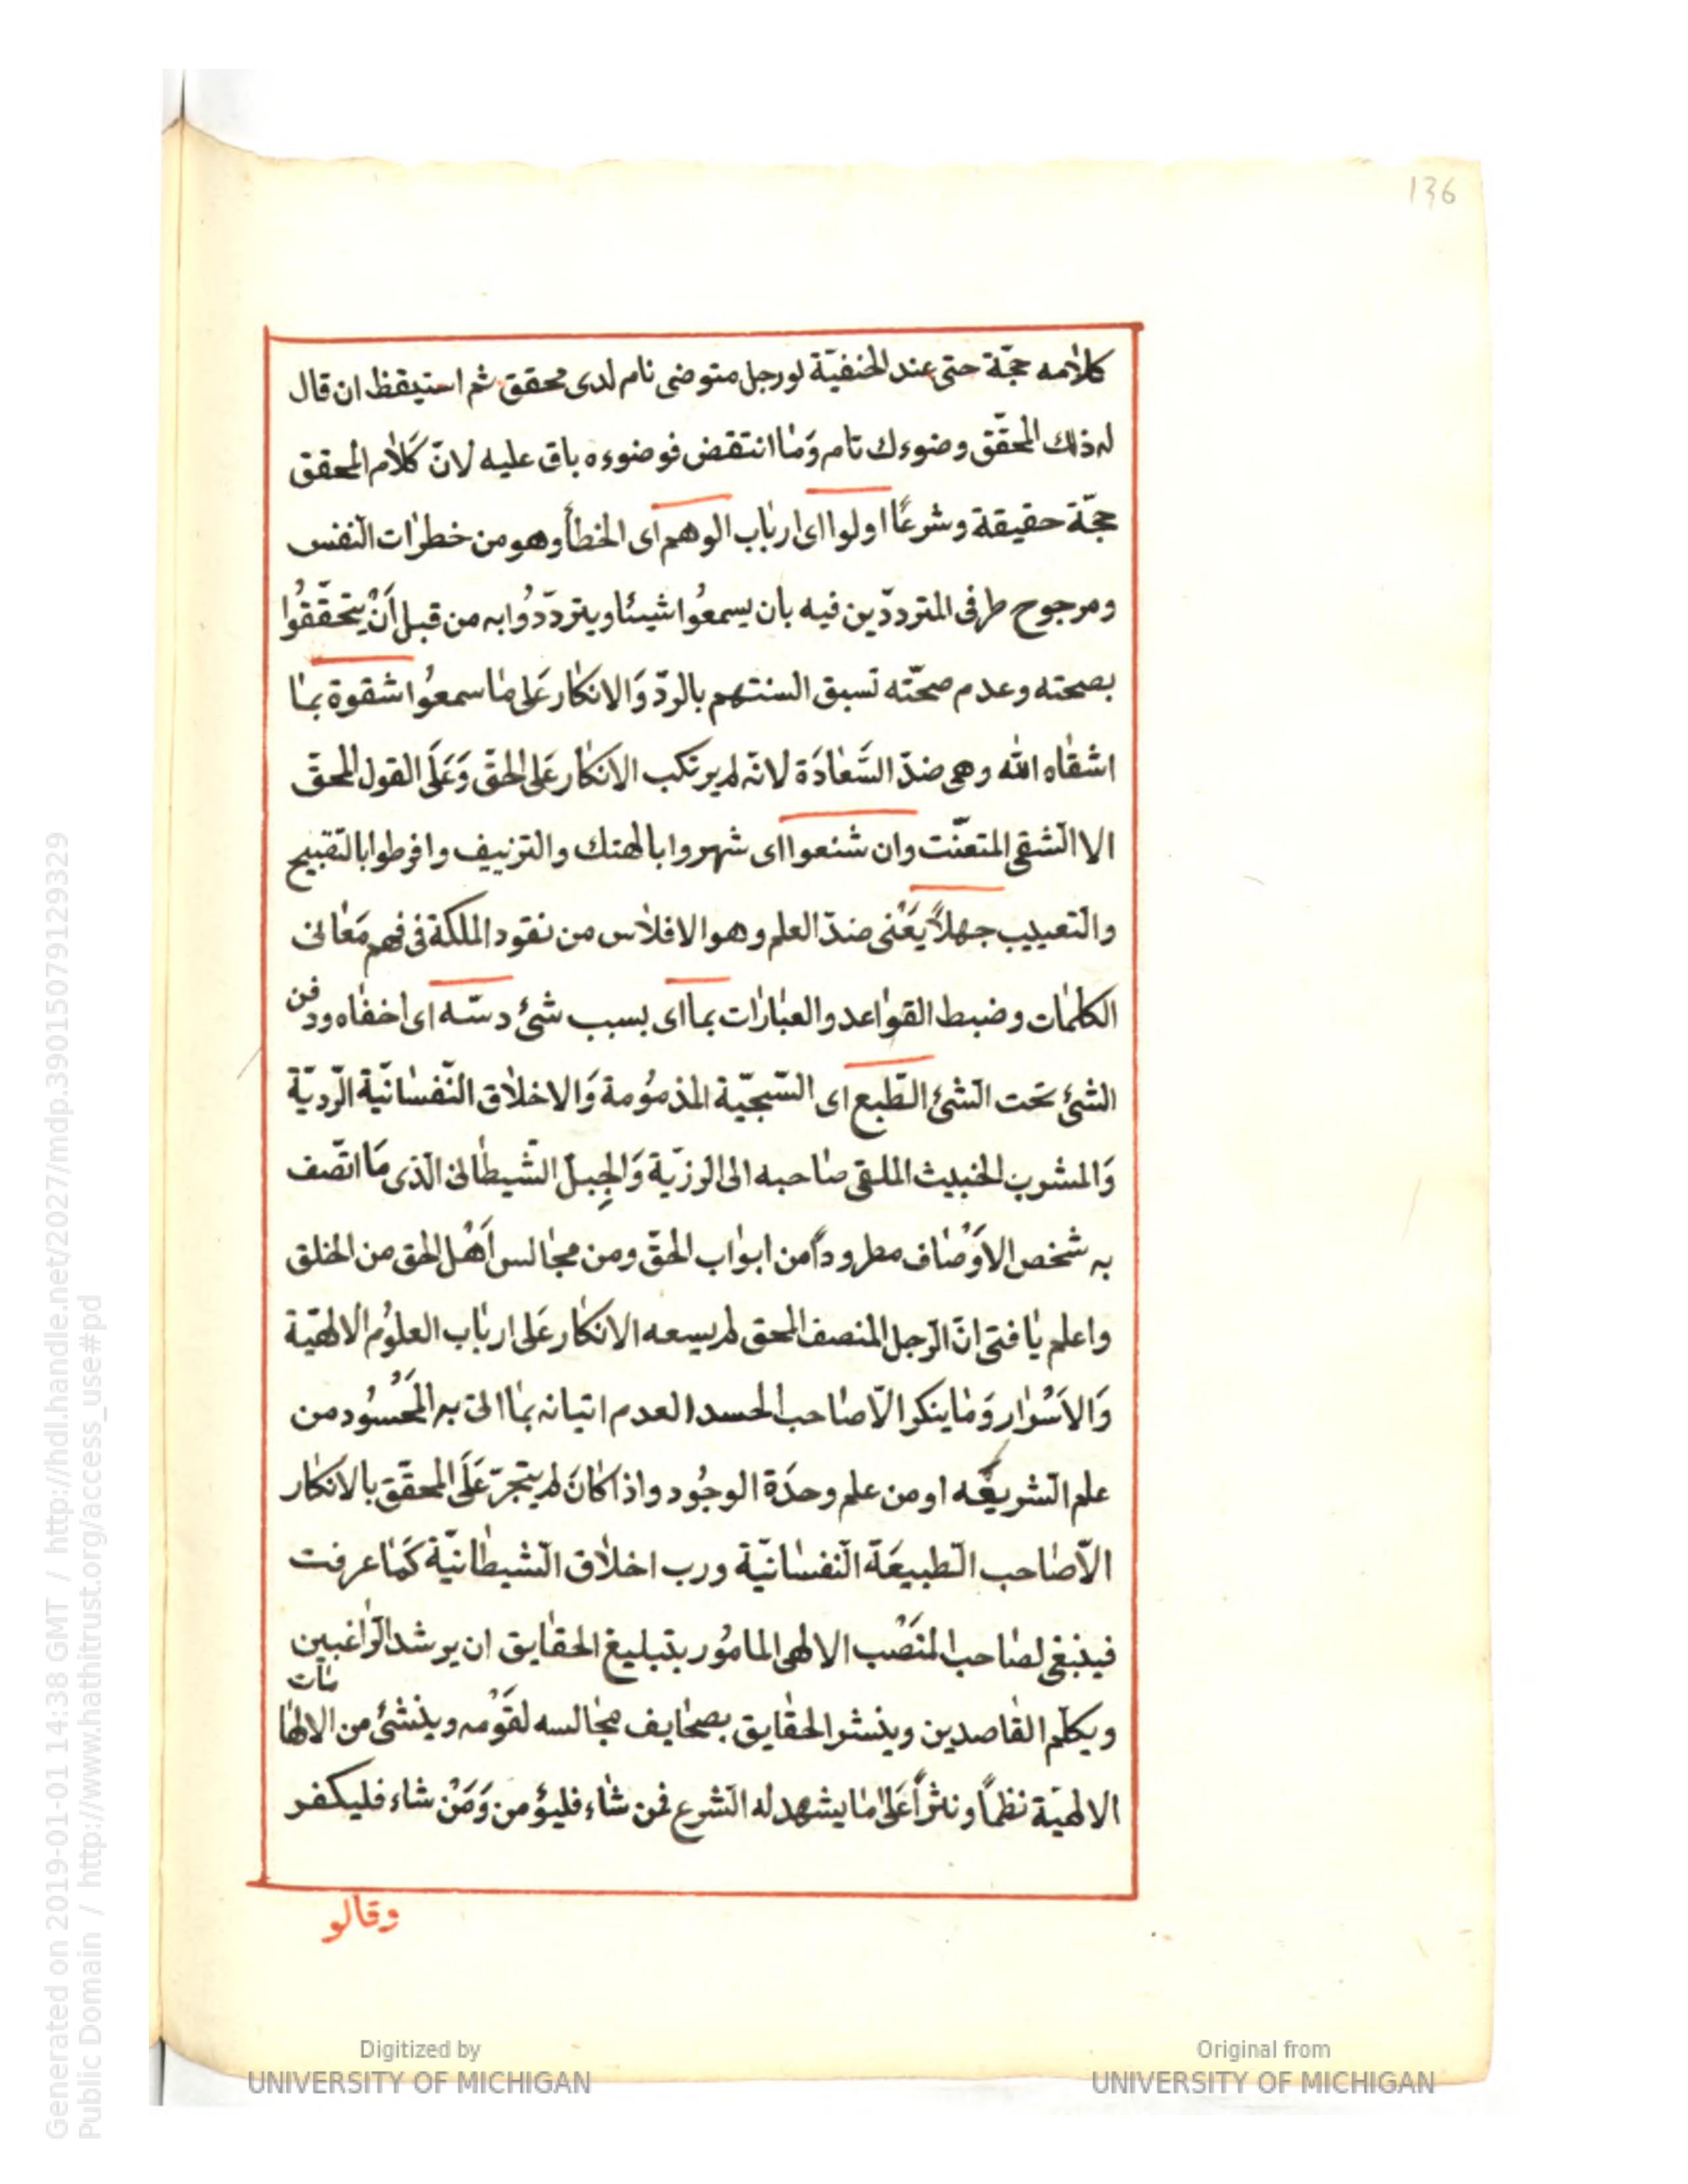 136
كلامه حجّة حتى عند الحنفيّة لو رجل متوضى نام لدى محقق ثم استيقظ ان قال
له ذلك المحقّق وضوءك تام وَمَا انتقض فوضوءه باق عليه لانّ كَلام المحقق
حجّة حقيقة وشرعًا اولوا اى ارباب الوهم اى الخطأ وهو من خطرات النّفس
ومرجوح طرفى المتردّدين فيه بان يسمعُوا شيئا ويتردّدُوا به من قبل أَنْ يتحَقّقُوا
بصحته وعدم صحّته تسبق السنتهم بالردّ وَالانكار عَلى ما سمعُوا شقوة بما
اشقاه الله وهى ضدّ السَّعادَة لانّه لم يرتكب الانكار عَلى الحقّ وَعَلَى القول المحقّ
الا الشّقى المتعنّت وان شنعوا اى شهروا بالهتك والتزييف وافرطوا بالتّقبيح
والتّعييب جهلاً يَعْنى ضدّ العلم وهو الافلاس من نقود الملكة فى فهم مَعَانى
الكلمات وضبط القواعد والعبارات بما اى بسبب شئ دسّه اى اخفاه ودفن
الشئ تحت الشّئ الطّبع اى السّجيّة المذمُومة وَالاخلاق النّفسانيّة الرّديّة
وَالمشرب الخبيث الملقى صاحبه الى الرزيّة وَالجِبلّ الشّيطانى الّذى مَا اتّصف
به شخص الاوْصاف مطروداً من ابواب الحقّ ومن مجالس أَهْل الحق من الخلق
واعلم يا فتى انّ الرّجل المنصف المحق لم يسعه الانكار عَلى ارباب العلوُم الالهيّة
وَالاَسْرار وَمَا ينكر الاّ صاحب الحسد لعدم اتيانه بما اتى به المَحْسُود من
علم الشّريعَة او من علم وحدَة الوجُود واذا كانَ لم يتجرّ عَلَى المحقّق بالانكار
الاّ صاحب الطّبيعَة النّفسانيّة ورب اخلاق الشّيطانيّة كَما عرفت
فينبغى لصاحب المنصْب الالهى المامُور بتبليغ الحقايق ان يرشد الرّاغبين
ويكلّم القاصدين وينشر الحقايق بصحايف مجالسه لقَوْمه وينشئ من الالها
مات
الالهيّة نظماً ونثراً عَلى ما يشهد له الشّرع فمن شاء فليؤمن وَمَنْ شاء فليكفر
وقالو
Digitized by
UNIVERSITY OF MICHIGAN
Original from
UNIVERSITY OF MICHIGAN
Generated on 2019-01-01 14:38 GMT / http://hdl.handle.net/2027/mdp.39015079129329
Public Domain / http://www.hathitrust.org/access_use#pd